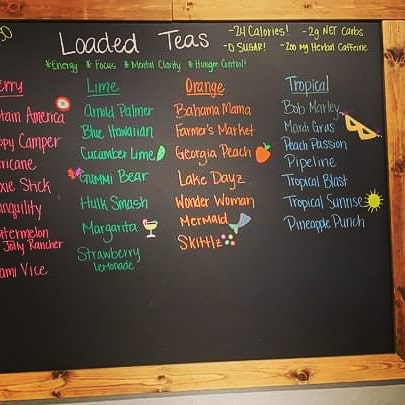 Loaded Teas
-24 Calories! -2g NET Carbs
-0 SUGAR! -200 mg Herbal Caffeine
*Energy *Focus *Mental Clarity *Hunger Control!
erry
ptain America
ppy Camper
rricane
xie Stick
anquility
atermelon
Jolly Rancher
ami Vice
Lime
Arnold Palmer
Blue Hawaiian
Cucumber Lime
Gummi Bear
Hulk Smash
Margarita
Strawberry
Lemonade
Orange
Bahama Mama
Farmer's Market
Georgia Peach
Lake Dayz
Wonder Woman
Mermaid
Skittlz
Tropical
Bob Marley
Mardi Gras
Peach Passion
Pipeline
Tropical Blast
Tropical Sunrise
Pineapple Punch